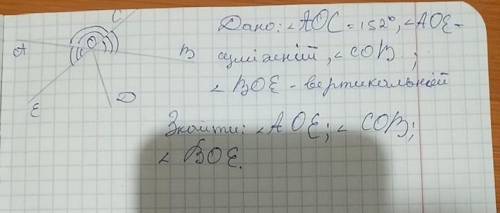 C
A
O
B
E
D
Дано: ∠AOC = 152°, ∠AOE-
суміжний, ∠COB ;
∠BOE - вертикольной
Знайти: ∠AOE; ∠COB;
∠BOE.